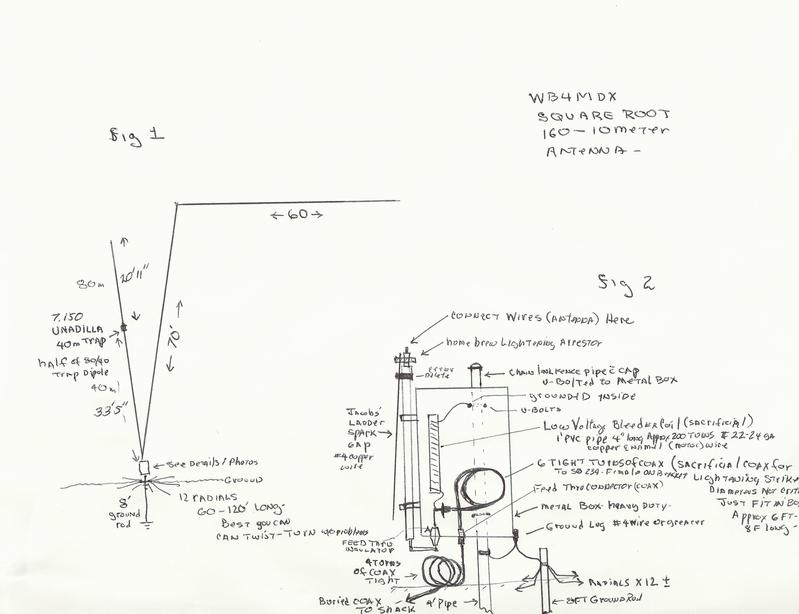 WB4MDX
SQUARE ROOT
160-10meter
ANTENNA -
fig 1
←60→
80m
20'11"
7.150
UNADILLA
40m TRAP
half of 80/40
Trap Dipole
40m
33'5"
←70'→
← See Details/Photos
GROUND
8'
ground
rod
12 RADIALS
60-120' long-
Best you can
CAN TWIST-TURN w/o problems
fig 2
CONNECT Wires (ANTENNA) Here
home brew Lightening Arrestor
ERROR
DELETE
CHAIN link fence pipe c̄ CAP
U-Bolted to Metal Box
GROUNDED INSIDE
U-BOLTS
Jacobs'
LADDER
SPARK
GAP
#4 copper
wire
Low Voltage Bleeder Coil (SACRIFICIAL)
1" PVC pipe 4" long Approx 200 TURNS # 22-24 GA
copper ENAMEL (MOTOR) WIRE
6 TIGHT TURNS of COAX (SACRIFICIAL COAX for
To SO 239-Female ON Bracket LIGHTENING STRIKE
DIAMETERS NOT CRITI
JUST FIT IN BO
Approx 6 FT-
8F long-
Feed Thru CONNECTOR (COAX)
METAL BOX HEAVY DUTY-
Ground Lug #4 wire or greater
FEED THRU
INSULATOR
4 TURNS
OF COAX
TIGHT
Buried COAX
TO SHACK
4' PIPE
RADIALS X12 ±
8FT GROUND ROD